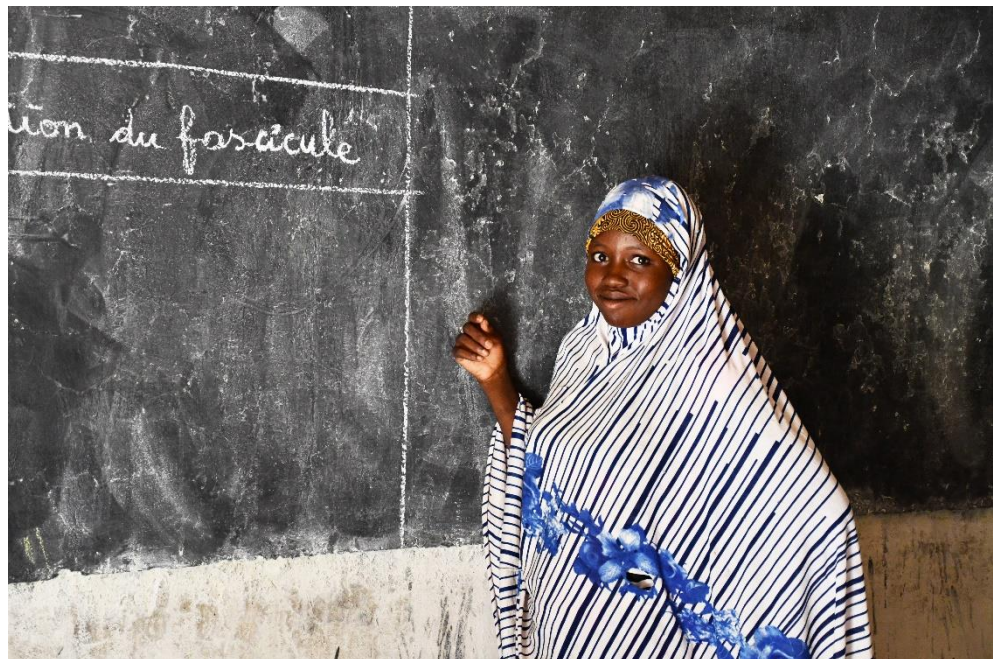 tion du fascicule